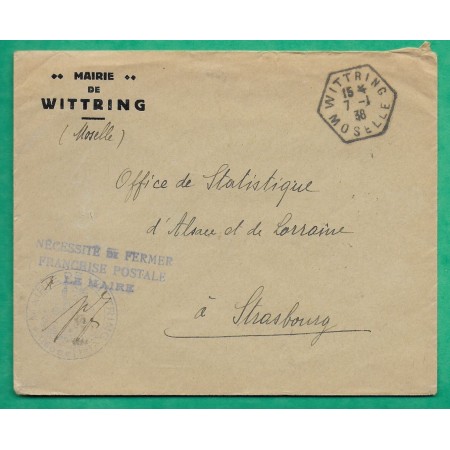 MAIRIE
DE
WITTRING
(Moselle)
WITTRING
15 *
7 -1
38
MOSELLE
Office de Statistique
d'Alsace et de Lorraine
à Strasbourg
NÉCESSITÉ DE FERMER
FRANCHISE POSTALE
LE MAIRE